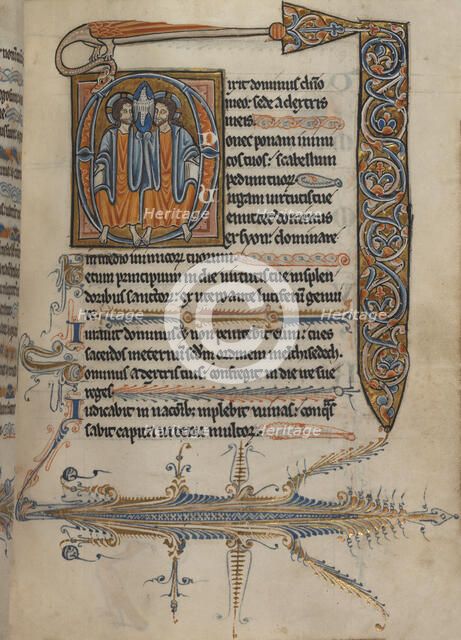 Dixit dominus dño
meo: sede a dextris
meis.
Donec ponam inimi
cos tuos: scabellum
pedum tuor̄.
Uirgam uirtutis tue
emittet dominus
ex syon: dominare
in medio inimicor̄ tuorum.
Tecum principium in die uirtutis tue in splen
doribus sanctor̄: ex utero ante luciferū genui
te.
Iurauit dominus et non penitebit eum: tu es
sacerdos in eternū scdm̄ ordinem melchisedech.
Dominus a dextris tuis: confregit in die ire sue
reges.
Iudicabit in nacōib; implebit ruinas: conq̄s
sabit capita in terra multor̄.
Heritage
Heritage
Heritage
Heritage
Heritage
Heritage